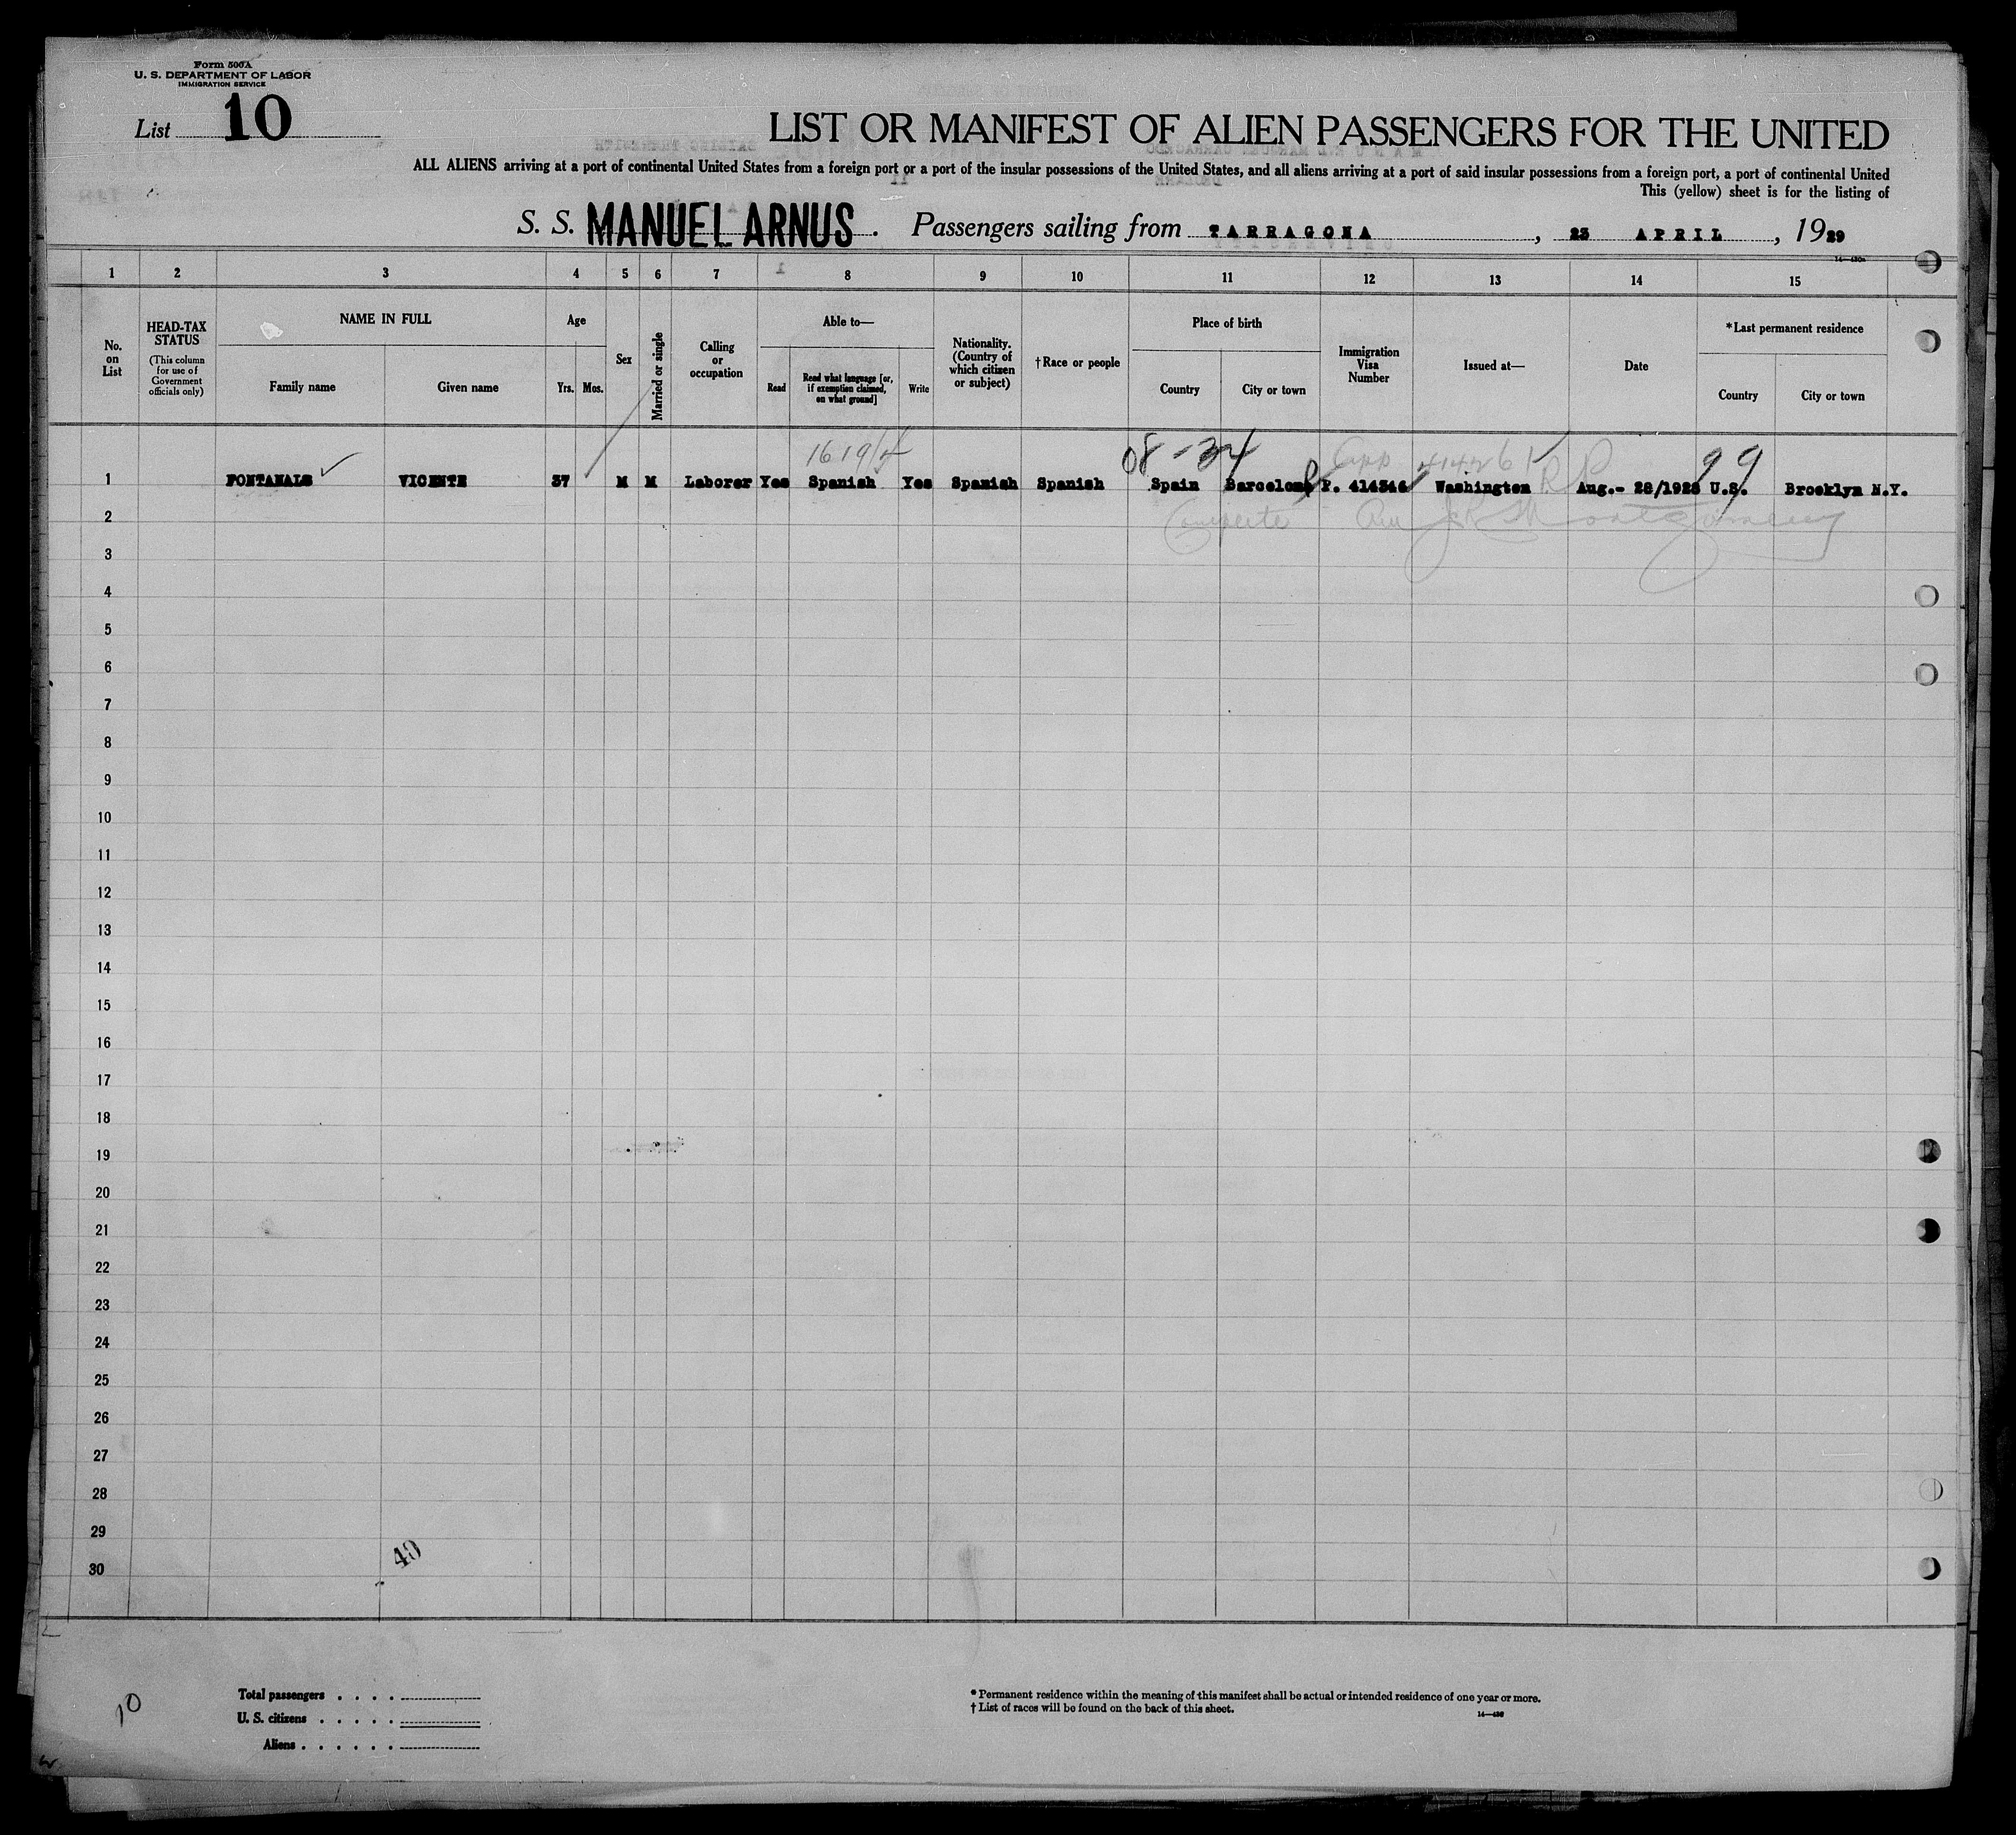 Form 500A
U. S. DEPARTMENT OF LABOR
IMMIGRATION SERVICE
List 10
LIST OR MANIFEST OF ALIEN PASSENGERS FOR THE UNITED
ALL ALIENS arriving at a port of continental United States from a foreign port or a port of the insular possessions of the United States, and all aliens arriving at a port of said insular possessions from a foreign port, a port of continental United
This (yellow) sheet is for the listing of
S. S. MANUEL ARNUS . Passengers sailing from TARRAGONA , 23 APRIL , 1929
1 2 3 4 5 6 7 8 9 10 11 12 13 14 15
No. on List
HEAD-TAX STATUS
(This column for use of Government officials only)
NAME IN FULL
Family name
Given name
Age
Yrs. Mos.
Sex
Married or single
Calling or occupation
Able to—
Read
Read what language [or, if exemption claimed, on what ground]
Write
Nationality. (Country of which citizen or subject)
†Race or people
Place of birth
Country
City or town
Immigration Visa Number
Issued at—
Date
*Last permanent residence
Country
City or town
08-34
99
1 FONTANALS VICENTE 37 M M Laborer Yes Spanish Yes Spanish Spanish Spain Barcelona P. 414346 Washington Aug.- 28/1928 U.S. Brooklyn N.Y.
2
3
4
5
6
7
8
9
10
11
12
13
14
15
16
17
18
19
20
21
22
23
24
25
26
27
28
29
30
40
10
Total passengers . . . .
U. S. citizens . . . . .
Aliens . . . . . .
* Permanent residence within the meaning of this manifest shall be actual or intended residence of one year or more.
† List of races will be found on the back of this sheet.